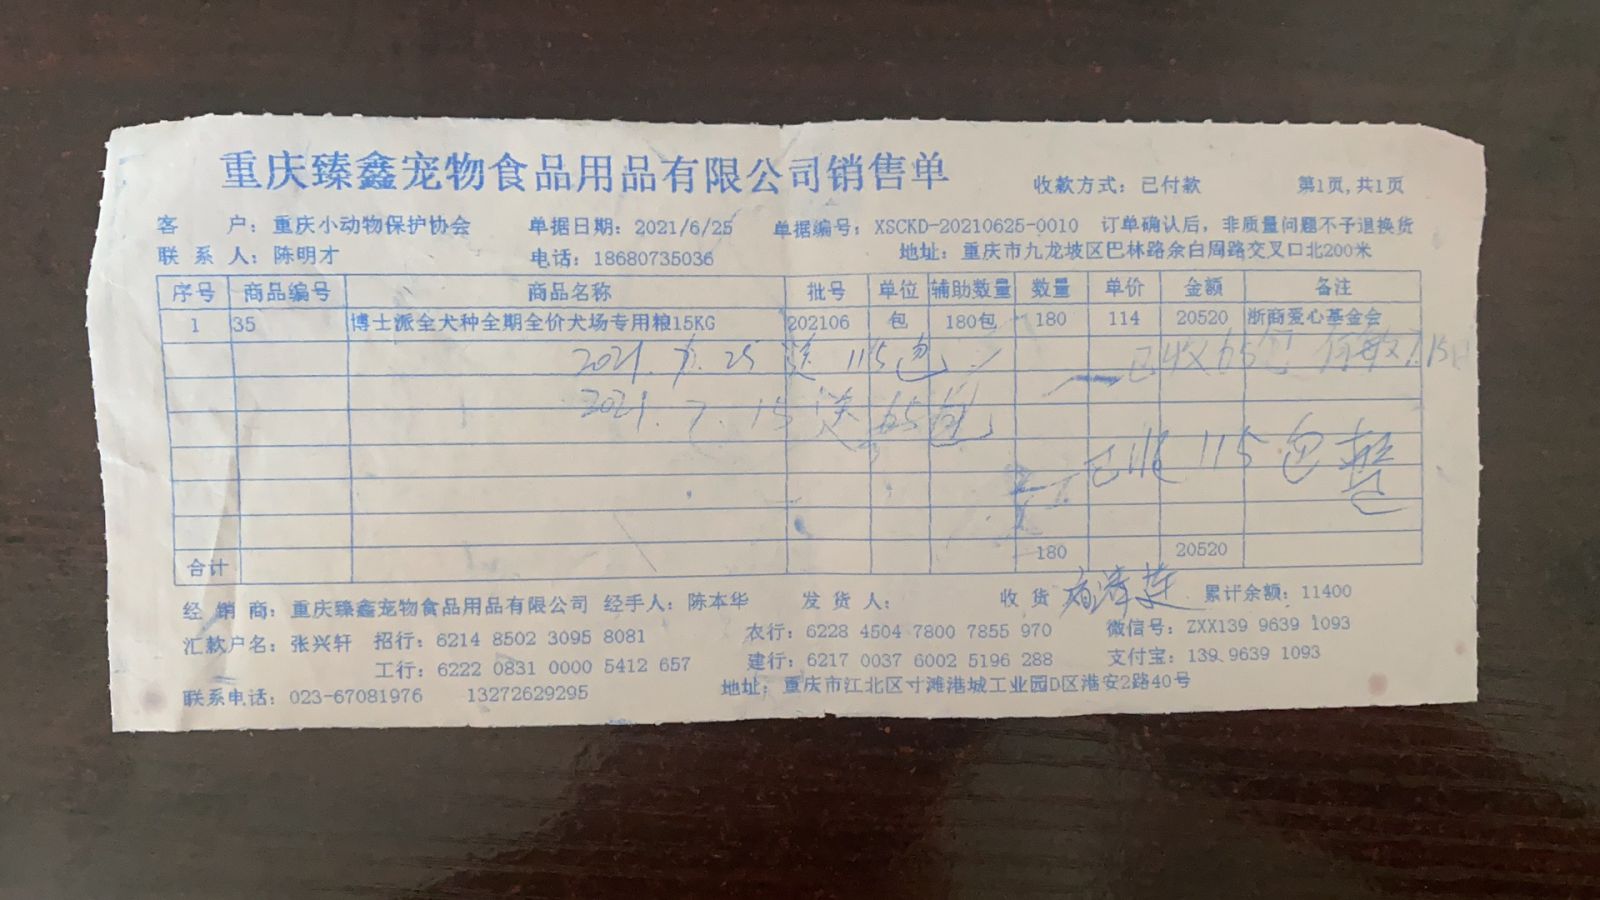 重庆臻鑫宠物食品用品有限公司销售单
收款方式：已付款 第1页,共1页
客 户：重庆小动物保护协会 单据日期：2021/6/25 单据编号：XSCKD-20210625-0010 订单确认后，非质量问题不予退换货
联系人：陈明才 电话：18680735036 地址：重庆市九龙坡区巴林路余白周路交叉口北200米
序号 商品编号 商品名称 批号 单位 辅助数量 数量 单价 金额 备注
1 35 博士派全犬种全期全价犬场专用粮15KG 202106 包 180包 180 114 20520 浙商爱心基金会
2021. 7. 25 送 115包 已收65包
2021. 7. 15 送 65包
已收 115 包
合计 180 20520
经销商：重庆臻鑫宠物食品用品有限公司 经手人：陈本华 发货人： 收货 累计余额：11400
汇款户名：张兴轩 招行：6214 8502 3095 8081 农行：6228 4504 7800 7855 970 微信号：ZXX139 9639 1093
工行：6222 0831 0000 5412 657 建行：6217 0037 6002 5196 288 支付宝：139 9639 1093
联系电话：023-67081976 13272629295 地址：重庆市江北区寸滩港城工业园D区港安2路40号